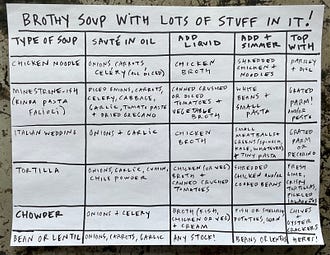 BROTHY SOUP WITH LOTS OF STUFF IN IT!
TYPE OF SOUP
SAUTÉ IN OIL
ADD LIQUID
ADD + SIMMER
TOP WITH
CHICKEN NOODLE
ONIONS, CARROTS
CELERY (ALL DICED)
CHICKEN
BROTH
SHREDDED
CHICKEN +
NOODLES
PARSLEY
+ DILL
MINESTRONE-ISH
(KINDA PASTA
FAGIOLI)
DICED ONIONS, CARROTS,
CELERY, CABBAGE,
GARLIC, TOMATO PASTE
+ DRIED OREGANO
CANNED CRUSHED
OR DICED
TOMATOES +
VEGETABLE
BROTH
WHITE
BEANS +
SMALL
PASTA
GRATED
PARM!
AND/OR
PESTO
ITALIAN WEDDING
ONIONS + GARLIC
CHICKEN
BROTH
SMALL
MEATBALLS +
GREENS (SPINACH,
KALE, WHATEVER)
+ TINY PASTA
GRATED
PARM
OR
PECORINO
TORTILLA
ONIONS, GARLIC, CUMIN,
CHILE POWDER
CHICKEN (OR VEG)
BROTH +
CANNED CRUSHED
TOMATOES
SHREDDED
CHICKEN AND/OR
COOKED BEANS
LIME,
PICKLED
CHOWDER
ONIONS + CELERY
BROTH (FISH,
CHICKEN OR VEG)
+ CREAM
FISH OR
POTATOES, CORN
CHIVES
+
OYSTER
CRACKERS
BEAN OR LENTIL
ONIONS, CARROTS, GARLIC
ANY STOCK!
BEANS OR LENTILS
HERBS!